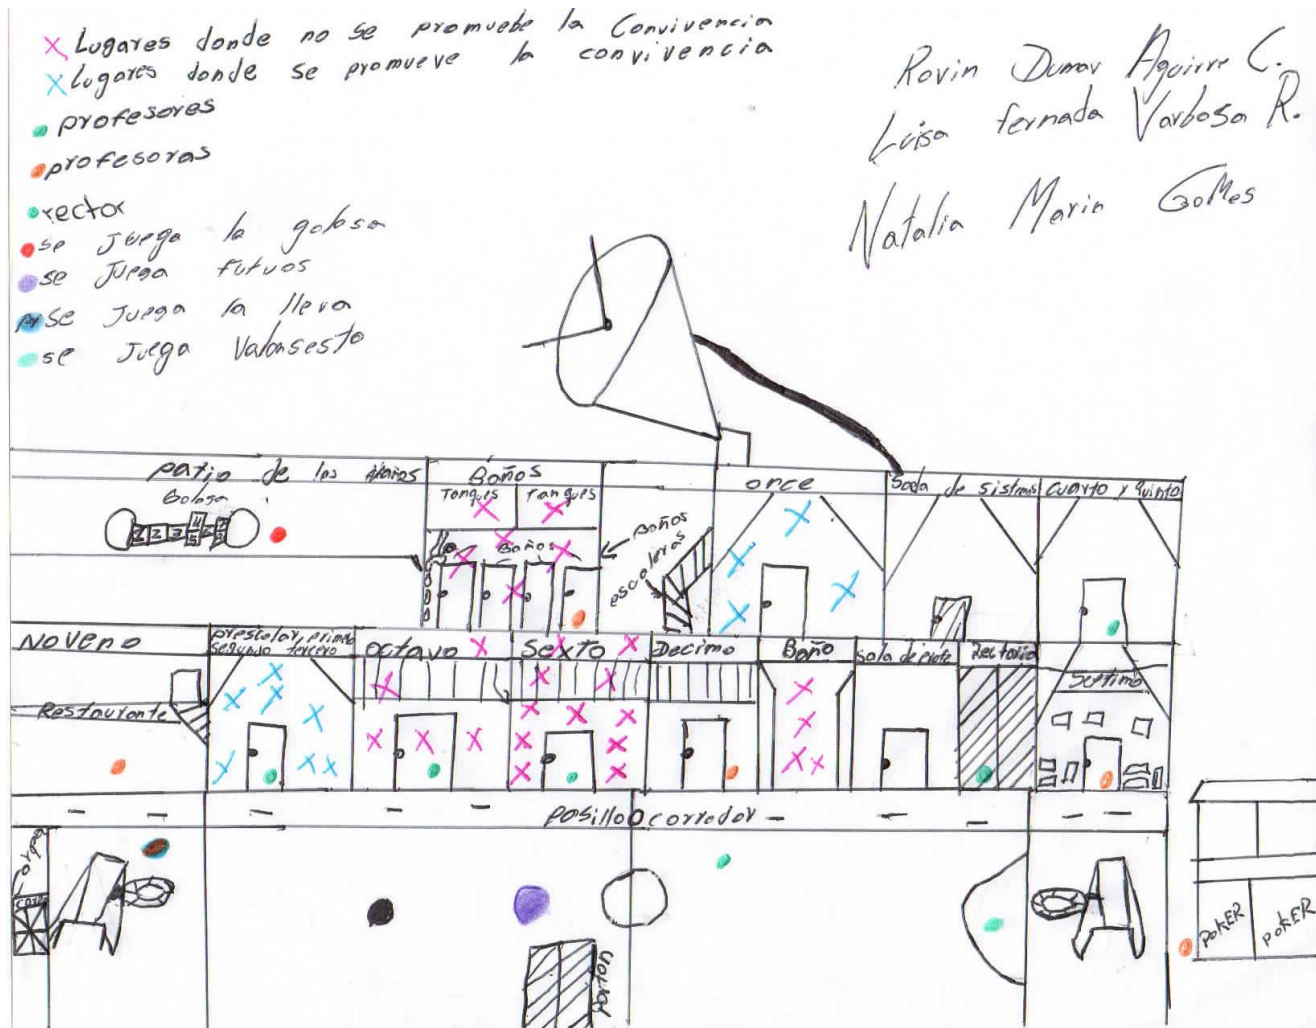 Lugares donde no se promuebe la Convivencia
Lugares donde se promueve la convivencia
profesores
profesoras
rector
se juega la golosa
se juega futvos
se juega la lleva
se juega Valonsesto
Rovin Dumar Aguirre C.
Luisa fernada Varbosa R.
Natalia Marin GoMes
patio de los
Golosa
Baños
Tanques Tanques
Baños
Baños
escaleras
once
Sala de sistmas
cuarto y quinto
NOVENO
Restaurante
prescolar, primero
segundo tercero
octavo
Sexto
Decimo
Baño
Sala de profe
Rectoria
Septimo
pasillo o corredor
carpa
porton
POKER
POKER